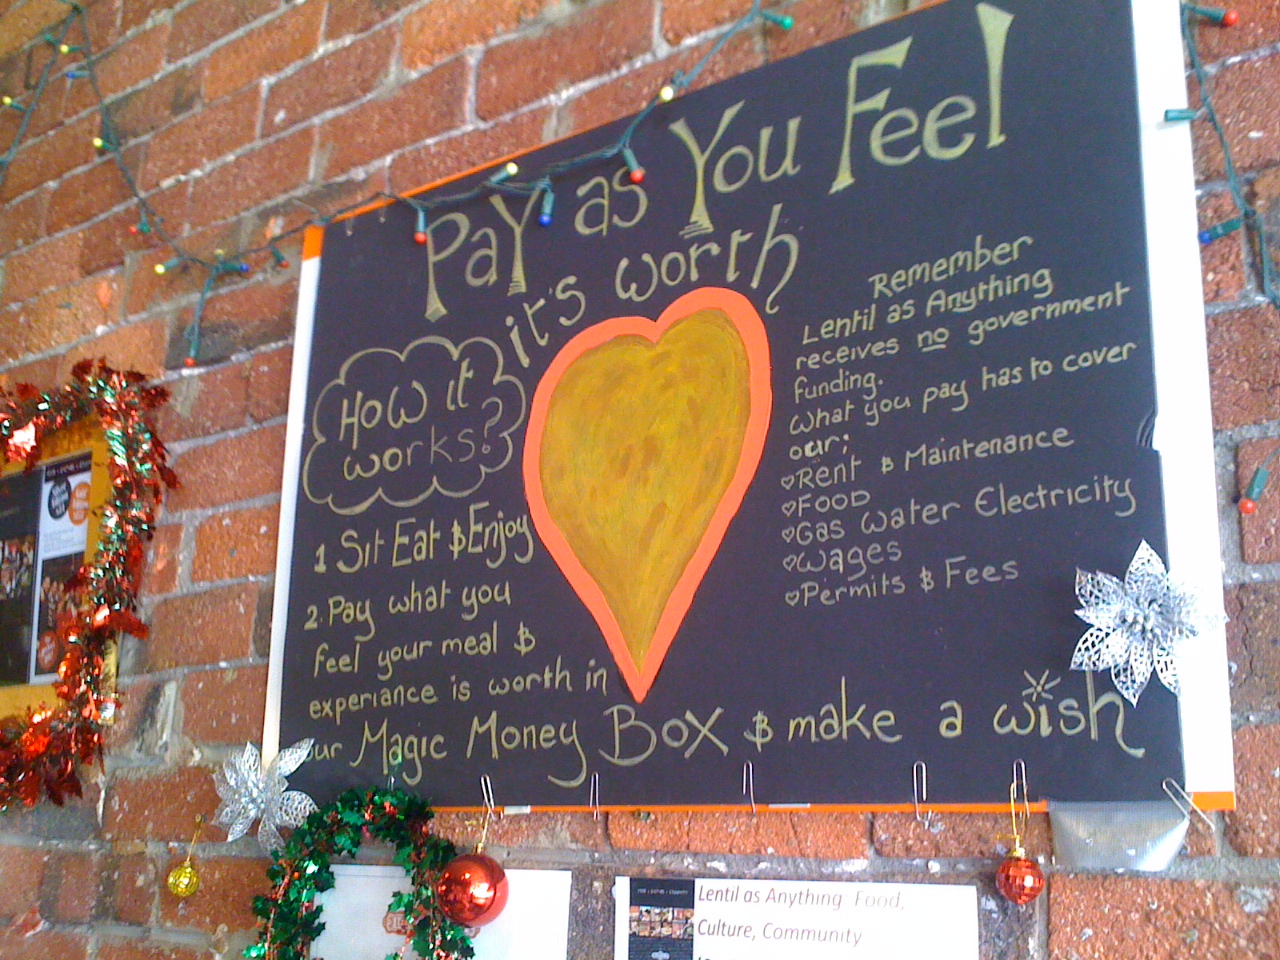 Pay as You Feel
it's worth
How it
works?
1 Sit Eat & Enjoy
2. Pay what you
feel your meal &
experiance is worth in
our Magic Money Box & make a wish
Remember
Lentil as Anything
receives no government
funding.
What you pay has to cover
our;
Rent & Maintenance
Food
Gas Water Electricity
Wages
Permits & Fees
Lentil as Anything Food,
Culture, Community